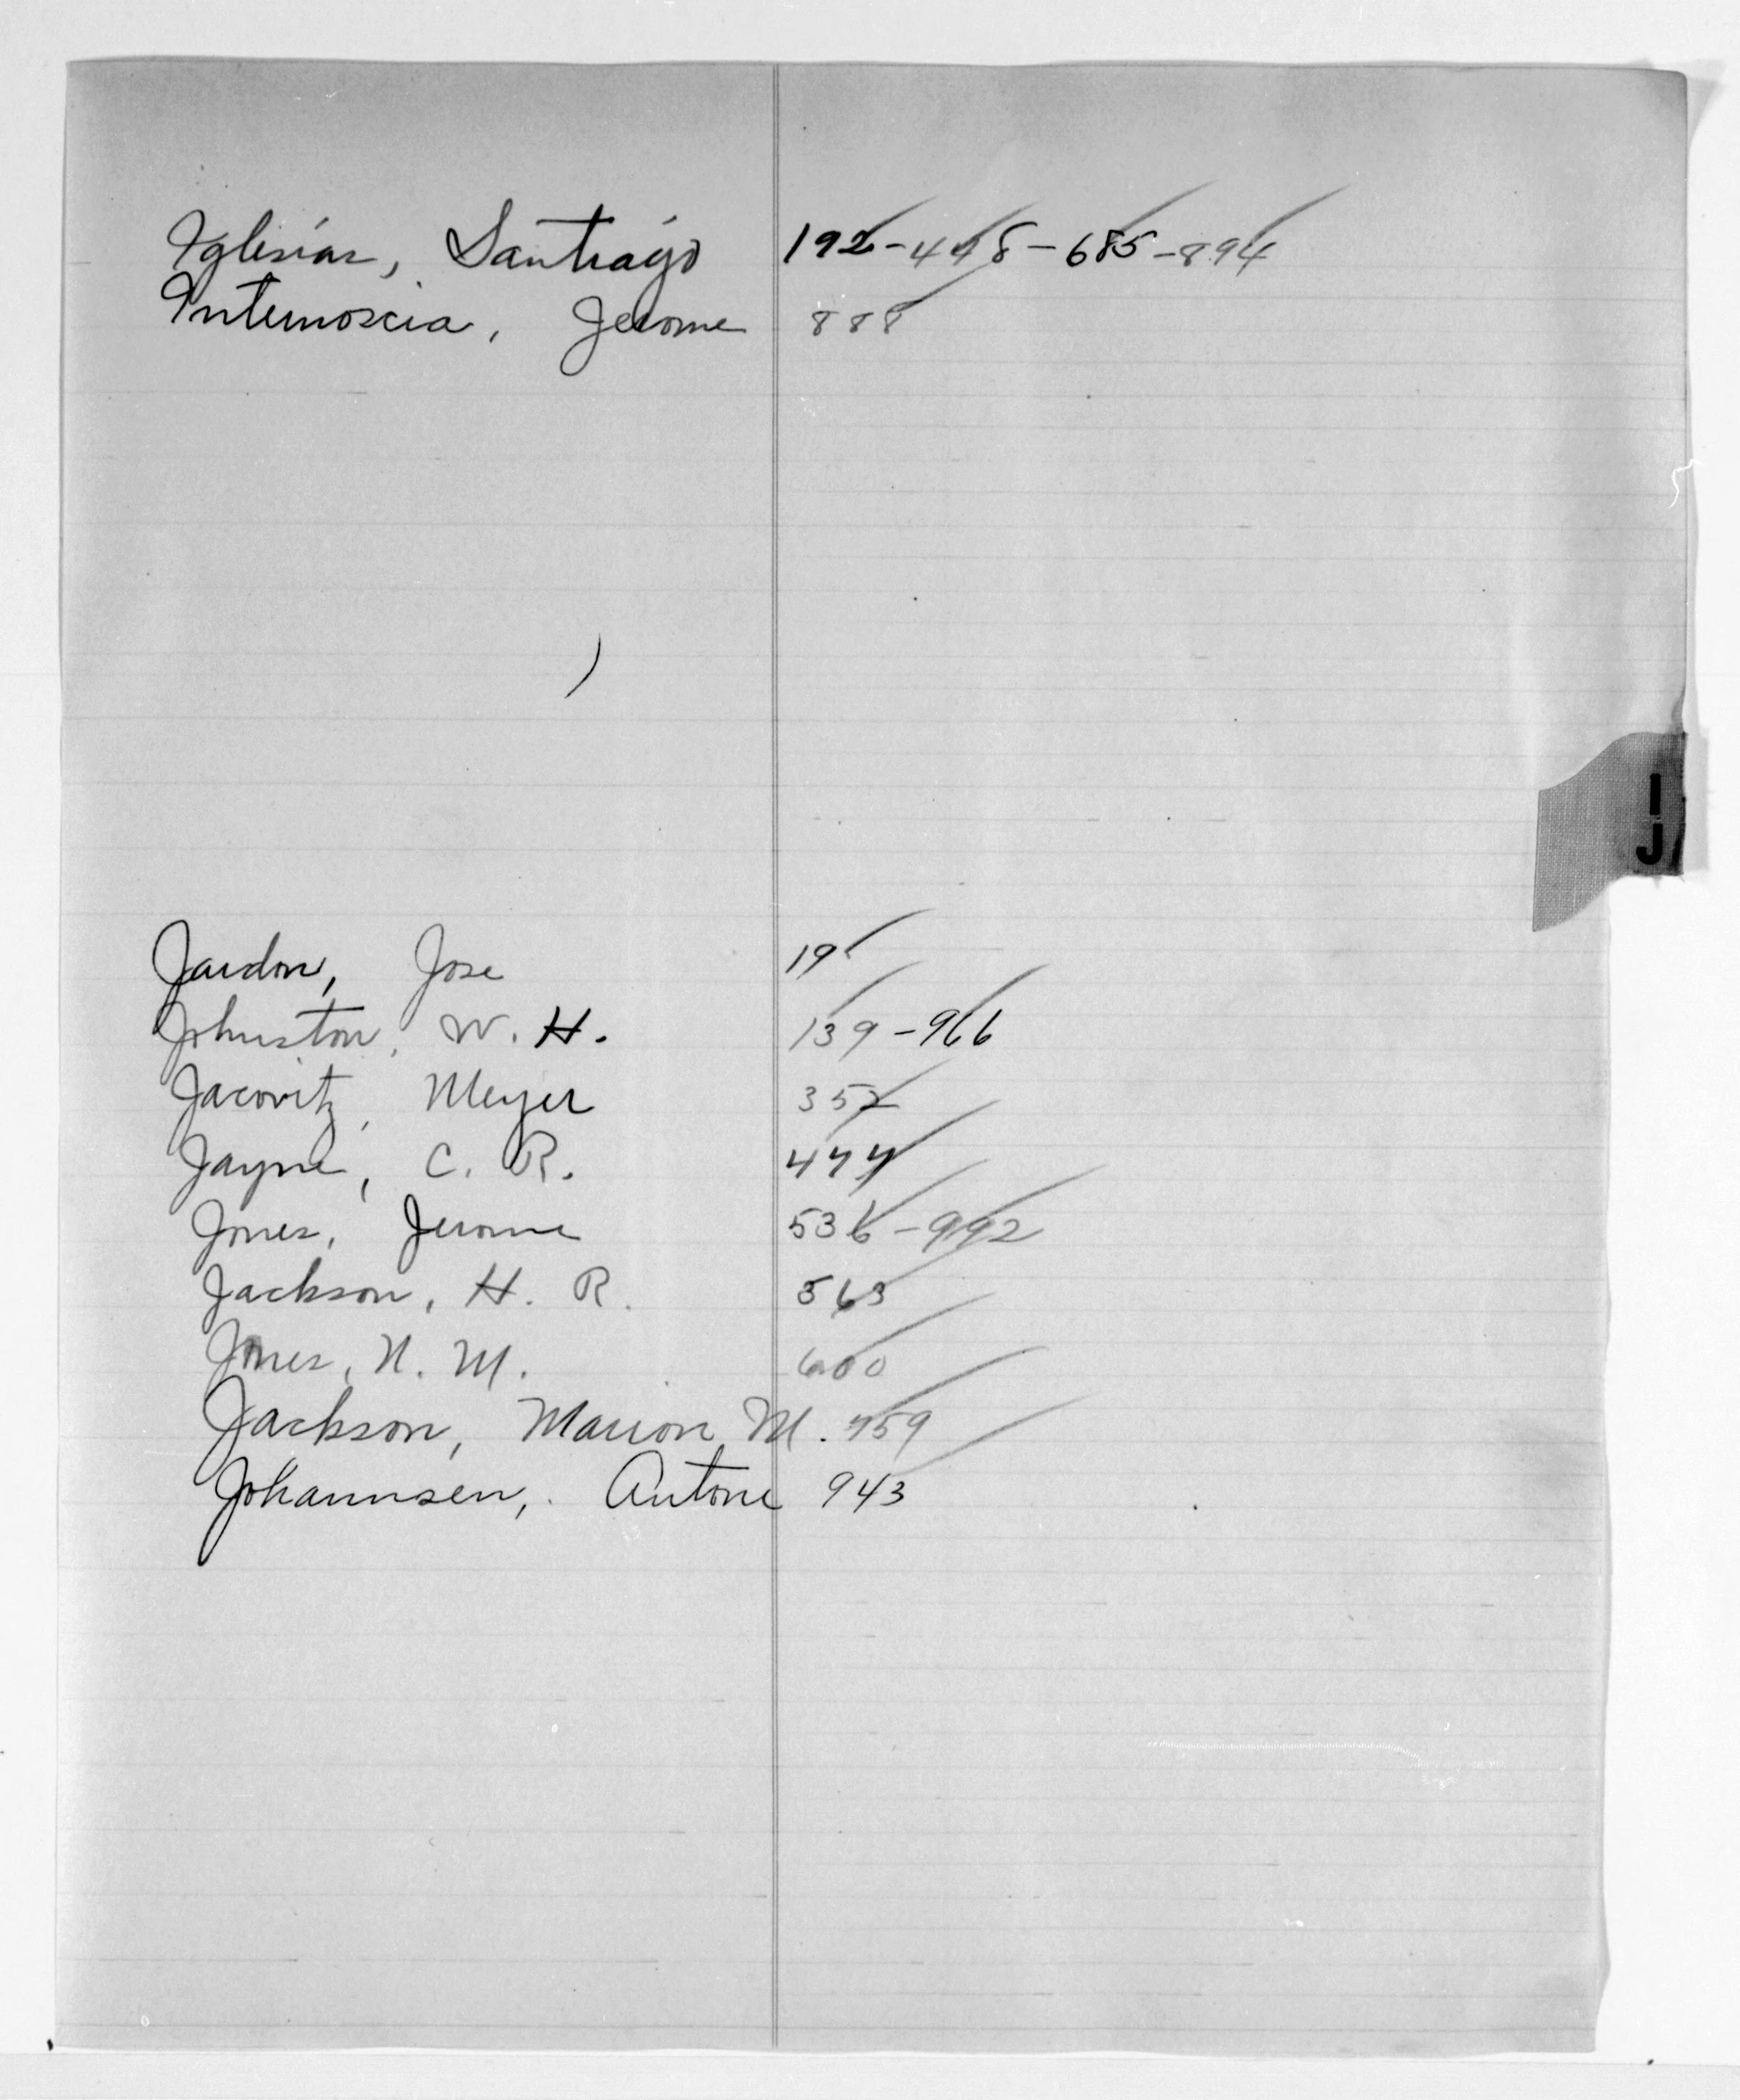 Iglesias, Santiago 192-448-685-894
Intemoscia, Jerome 888
I
J
Jardon, Jose 19
Johnston, W. H. 139-966
Jacovitz, Meyer 352
Jayne, C. R.
Jones, Jerome 536-992
Jackson, H. R. 563
Jones, N. M. 600
Jackson, Marion M. 759
Johannsen, Antone 943